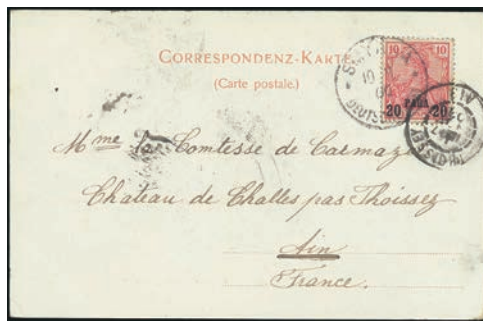 CORRESPONDENZ-KARTE
(Carte postale.)
10 10
20 PARA 20
Mme la Comtesse de Carmazo
Chateau de Challes pas Thoissez
Ain
France.